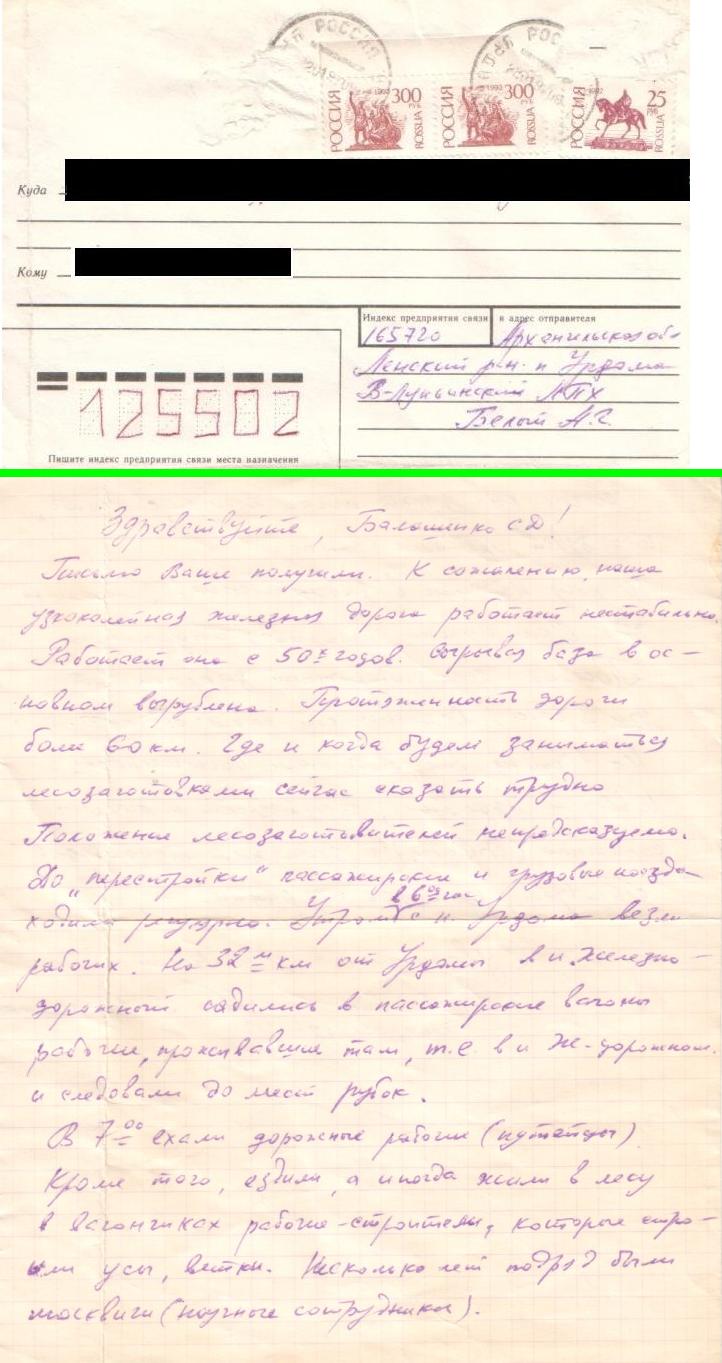 РОССИЯ
РОССИЯ 1992 300 РУБ ROSSIJA
РОССИЯ 1992 300 РУБ ROSSIJA
РОССИЯ 1992 25 РУБ ROSSIJA
Куда
Кому
Индекс предприятия связи и адрес отправителя
165720 Архангельская обл
Ленский р-н. п Урдома
В-Лупьинский ЛПХ
Белый А.Г.
125502
Пишите индекс предприятия связи места назначения
Здравствуйте, Балашенко СД!
Письмо Ваше получили. К сожалению, наша
узкоколейная железная дорога работает нестабильно.
Работает она с 50х годов. Сырьевая база в ос-
новном вырублена. Протяженность дороги
боле 60 км. Где и когда будем заниматься
лесозаготовками сейчас сказать трудно
Положение лесозаготовителей непредсказуемо.
До "перестройки" пассажирские и грузовые поезда
ходили регулярно. Утром в 6 00 час с п. Урдома везли
рабочих. На 32м км от Урдомы в п. Железно-
дорожный садились в пассажирские вагоны
рабочие, проживавшие там, т.е. в п Ж-дорожном.
и следовали до мест рубок.
В 7 00 ехали дорожные рабочие (путейцы)
Кроме того, ездили, а иногда жили в лесу
в вагончиках рабочие-строители, которые стро-
или усы, ветки. Несколько лет подряд были
москвичи (научные сотрудники).